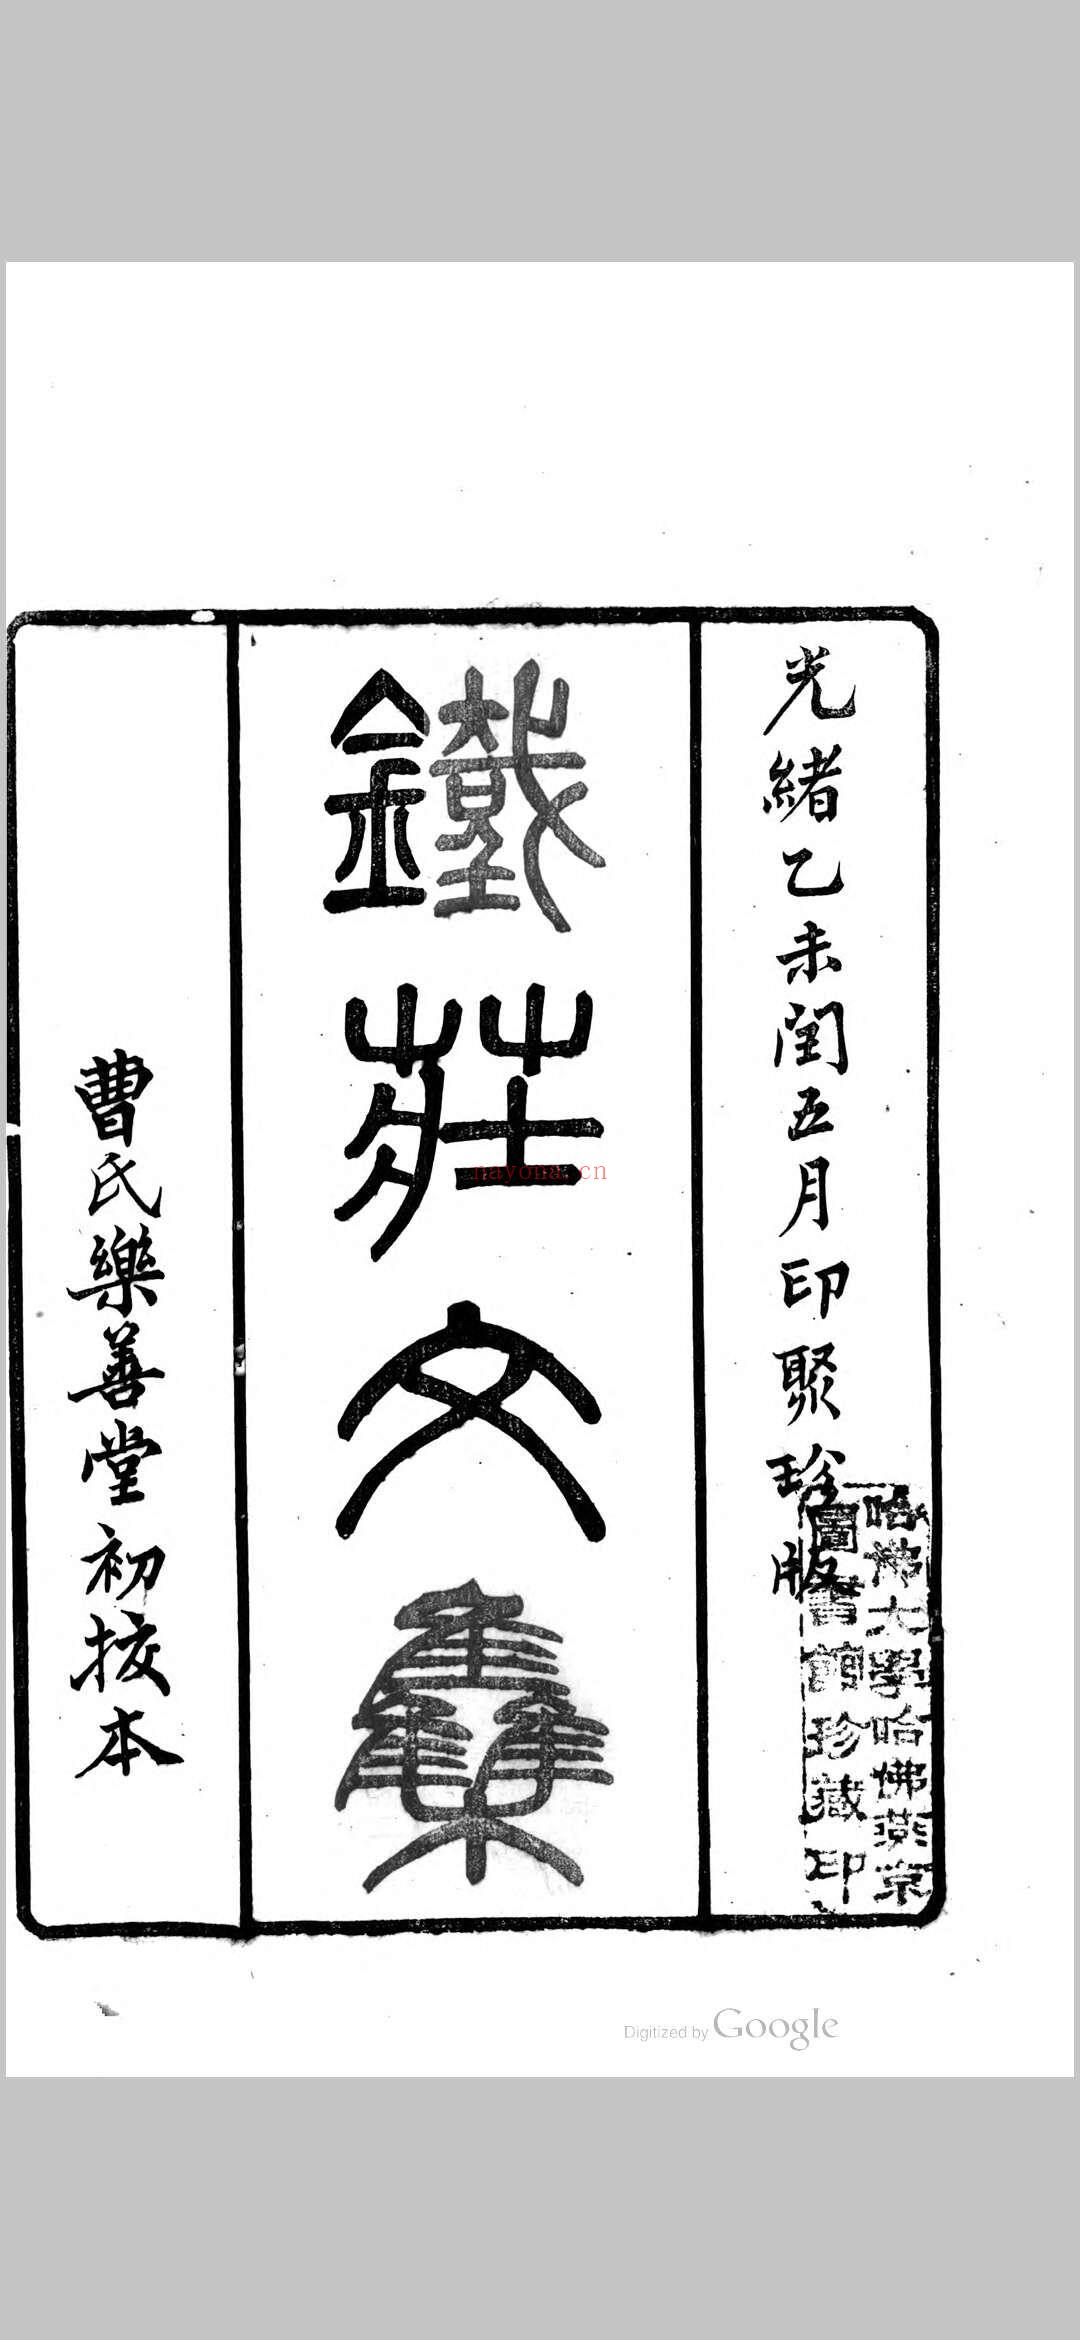 光緒乙未閏五月印聚珍版
鐵莊文集
曹氏樂善堂初挍本
哈佛大學哈佛燕京
圖書館珍藏印
nayona.cn
Digitized by Google